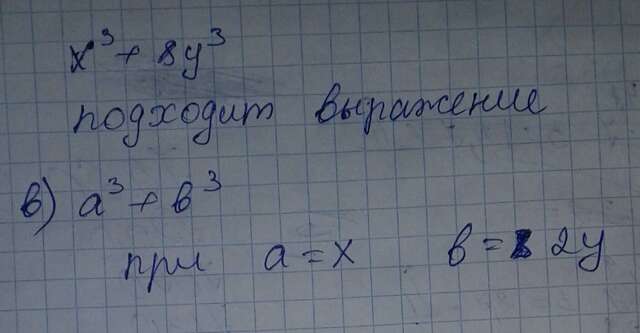 x³ + 8y³
подходит выражение
в) a³ + в³
при a = x в = 2y